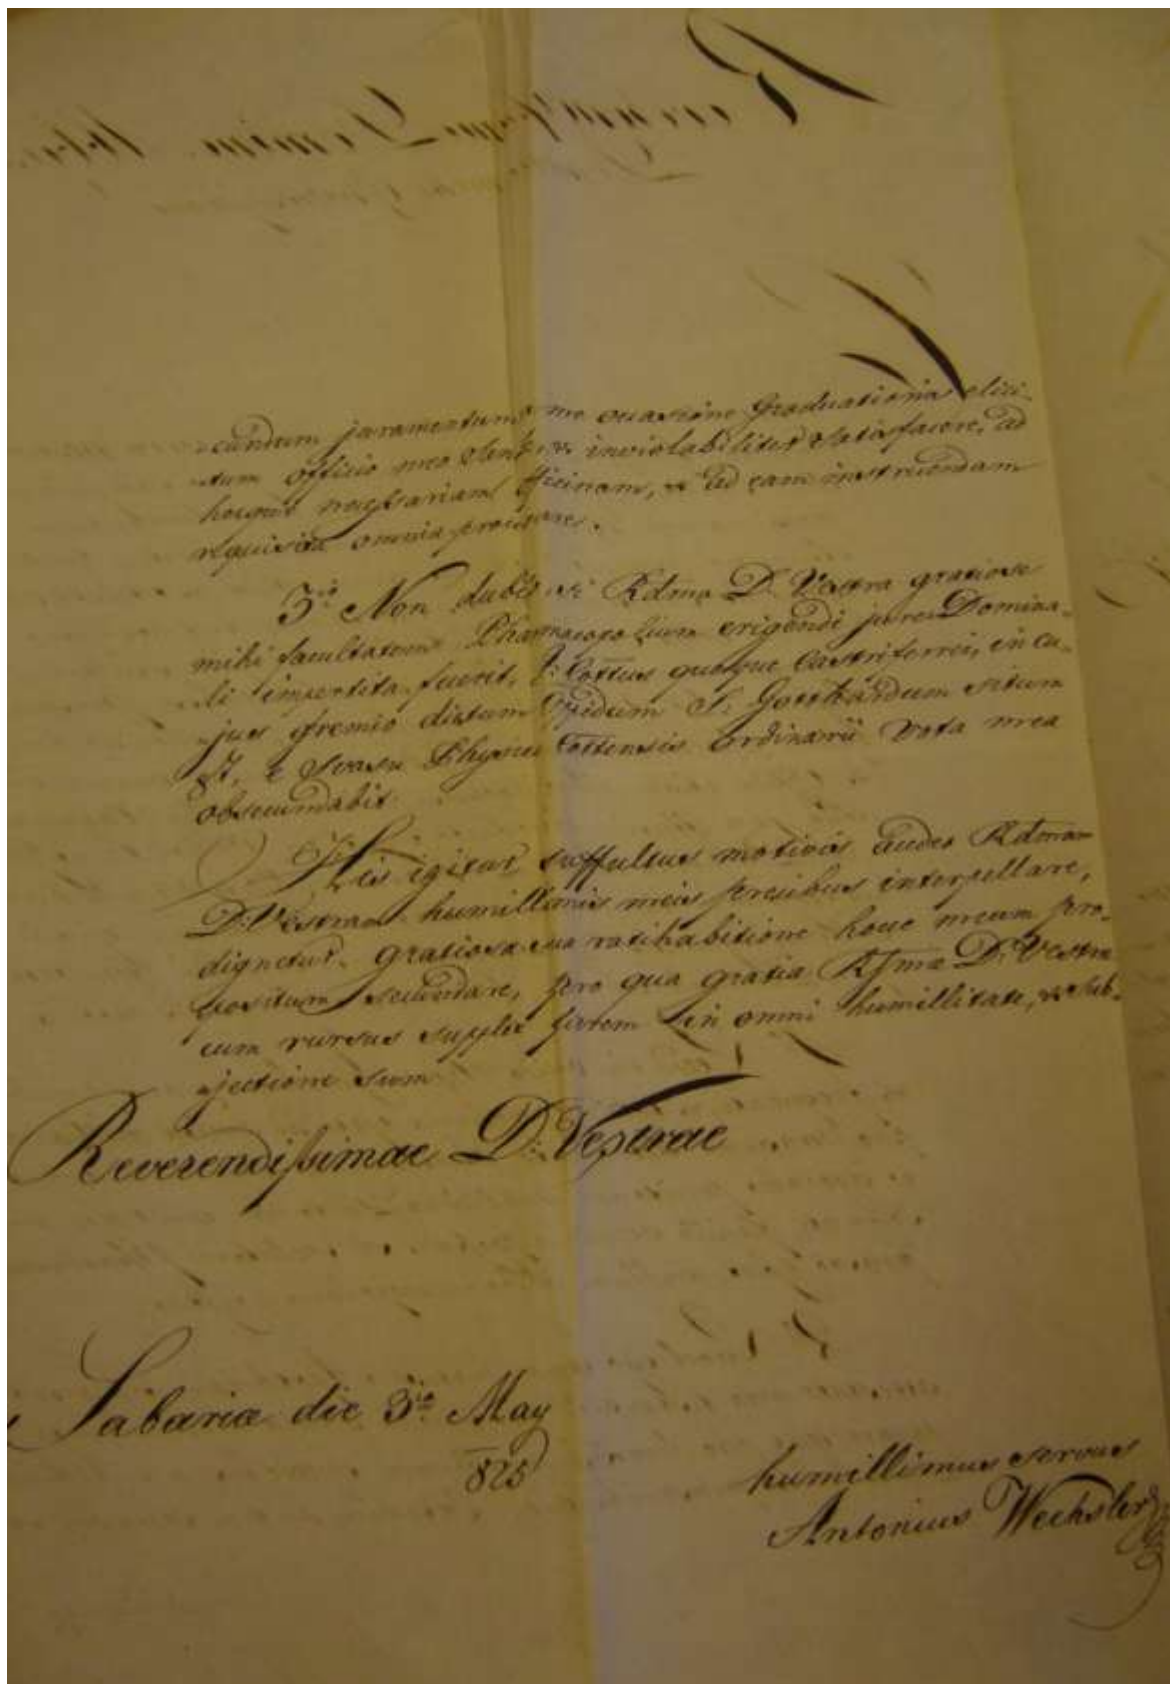 -cundum juramentum me occasione Graduationis elici-
-tum officio meo inviolabiliter satisfacere, ad
hocque necessariam officinam, & ad eam instruendam
requisita omnia procurare.
3io Non dubito si Rdma D. Vestra gratiose
mihi facultatem Pharmacopolium erigendi jure Domina-
-li impertita fuerit, I: Cottus quoque Castriferrei, in cu-
-jus gremio dictum Oppidum S. Gotthardum situm
est, e Svasu Physici Cottensis ordinarii vota mea
obsecundabit.
His igitur suffultus motivis audeo Rdmam
D: Vestram humillimis meis precibus interpellare,
dignetur gratiosa sua ratihabitione hocce meum pro-
-positum secundare, pro qua gratia Rssmae D. Vestrae
cum rursus supplex forem in omni humillitate, & sub-
-jectione sum
Reverendissimae D: Vestrae
Sabariae die 3ia May
825
humillimus servus
Antonius Wechsler